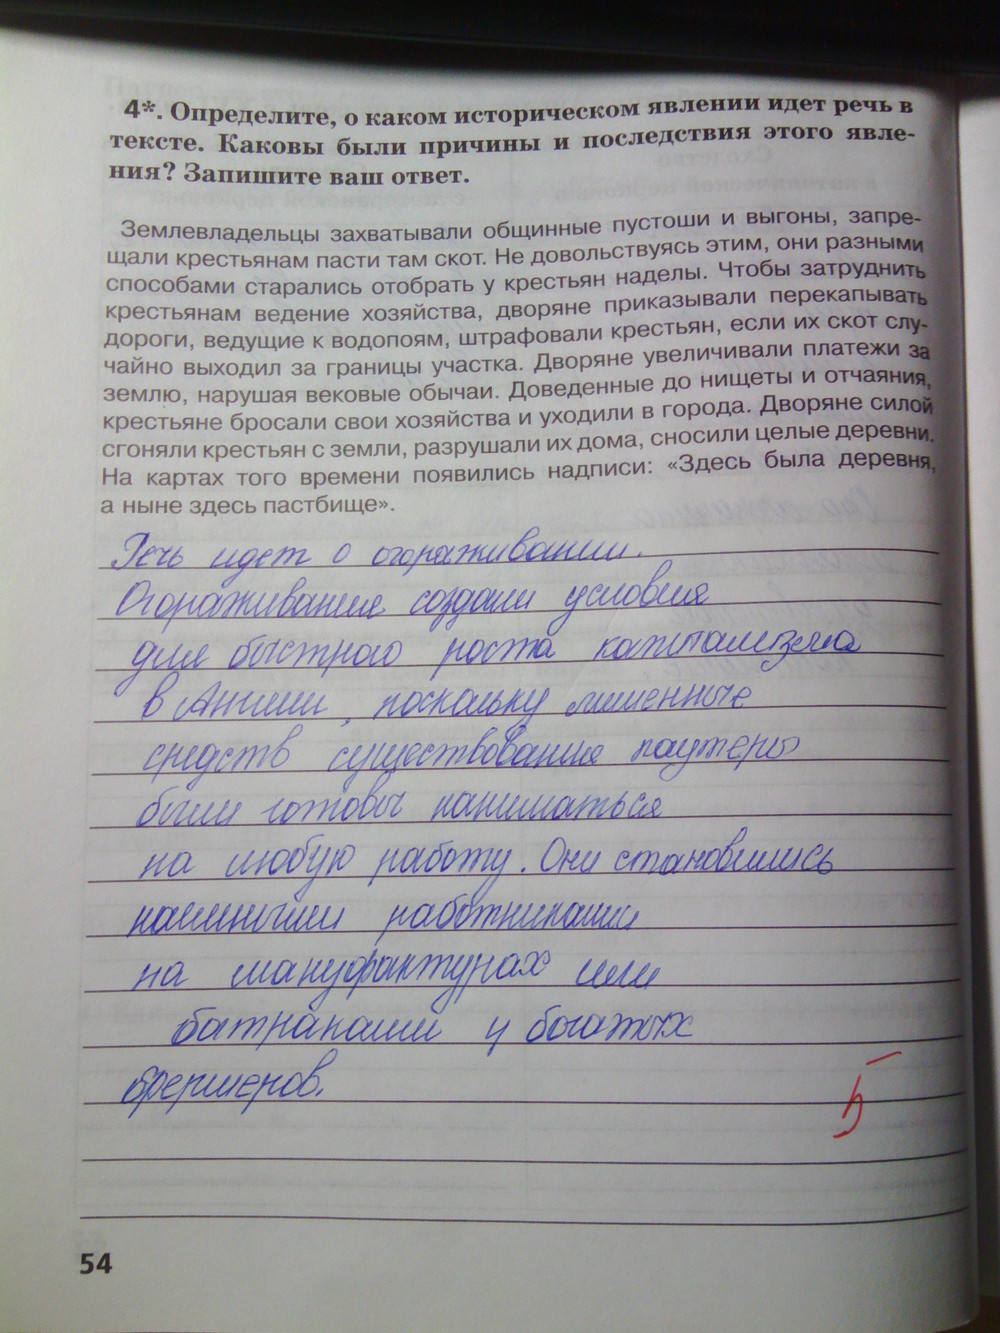 4*. Определите, о каком историческом явлении идет речь в
тексте. Каковы были причины и последствия этого явле-
ния? Запишите ваш ответ.
Землевладельцы захватывали общинные пустоши и выгоны, запре-
щали крестьянам пасти там скот. Не довольствуясь этим, они разными
способами старались отобрать у крестьян наделы. Чтобы затруднить
крестьянам ведение хозяйства, дворяне приказывали перекапывать
дороги, ведущие к водопоям, штрафовали крестьян, если их скот слу-
чайно выходил за границы участка. Дворяне увеличивали платежи за
землю, нарушая вековые обычаи. Доведенные до нищеты и отчаяния,
крестьяне бросали свои хозяйства и уходили в города. Дворяне силой
сгоняли крестьян с земли, разрушали их дома, сносили целые деревни.
На картах того времени появились надписи: «Здесь была деревня,
а ныне здесь пастбище».
Речь идет о огораживании.
Огораживания создали условия
для быстрого роста капитализма
в Англии, поскольку лишенные
средств существования пауперы
были готовы наниматься
на любую работу. Они становились
наемными работниками
на мануфактурах или
батраками у богатых
фермеров.
5
54